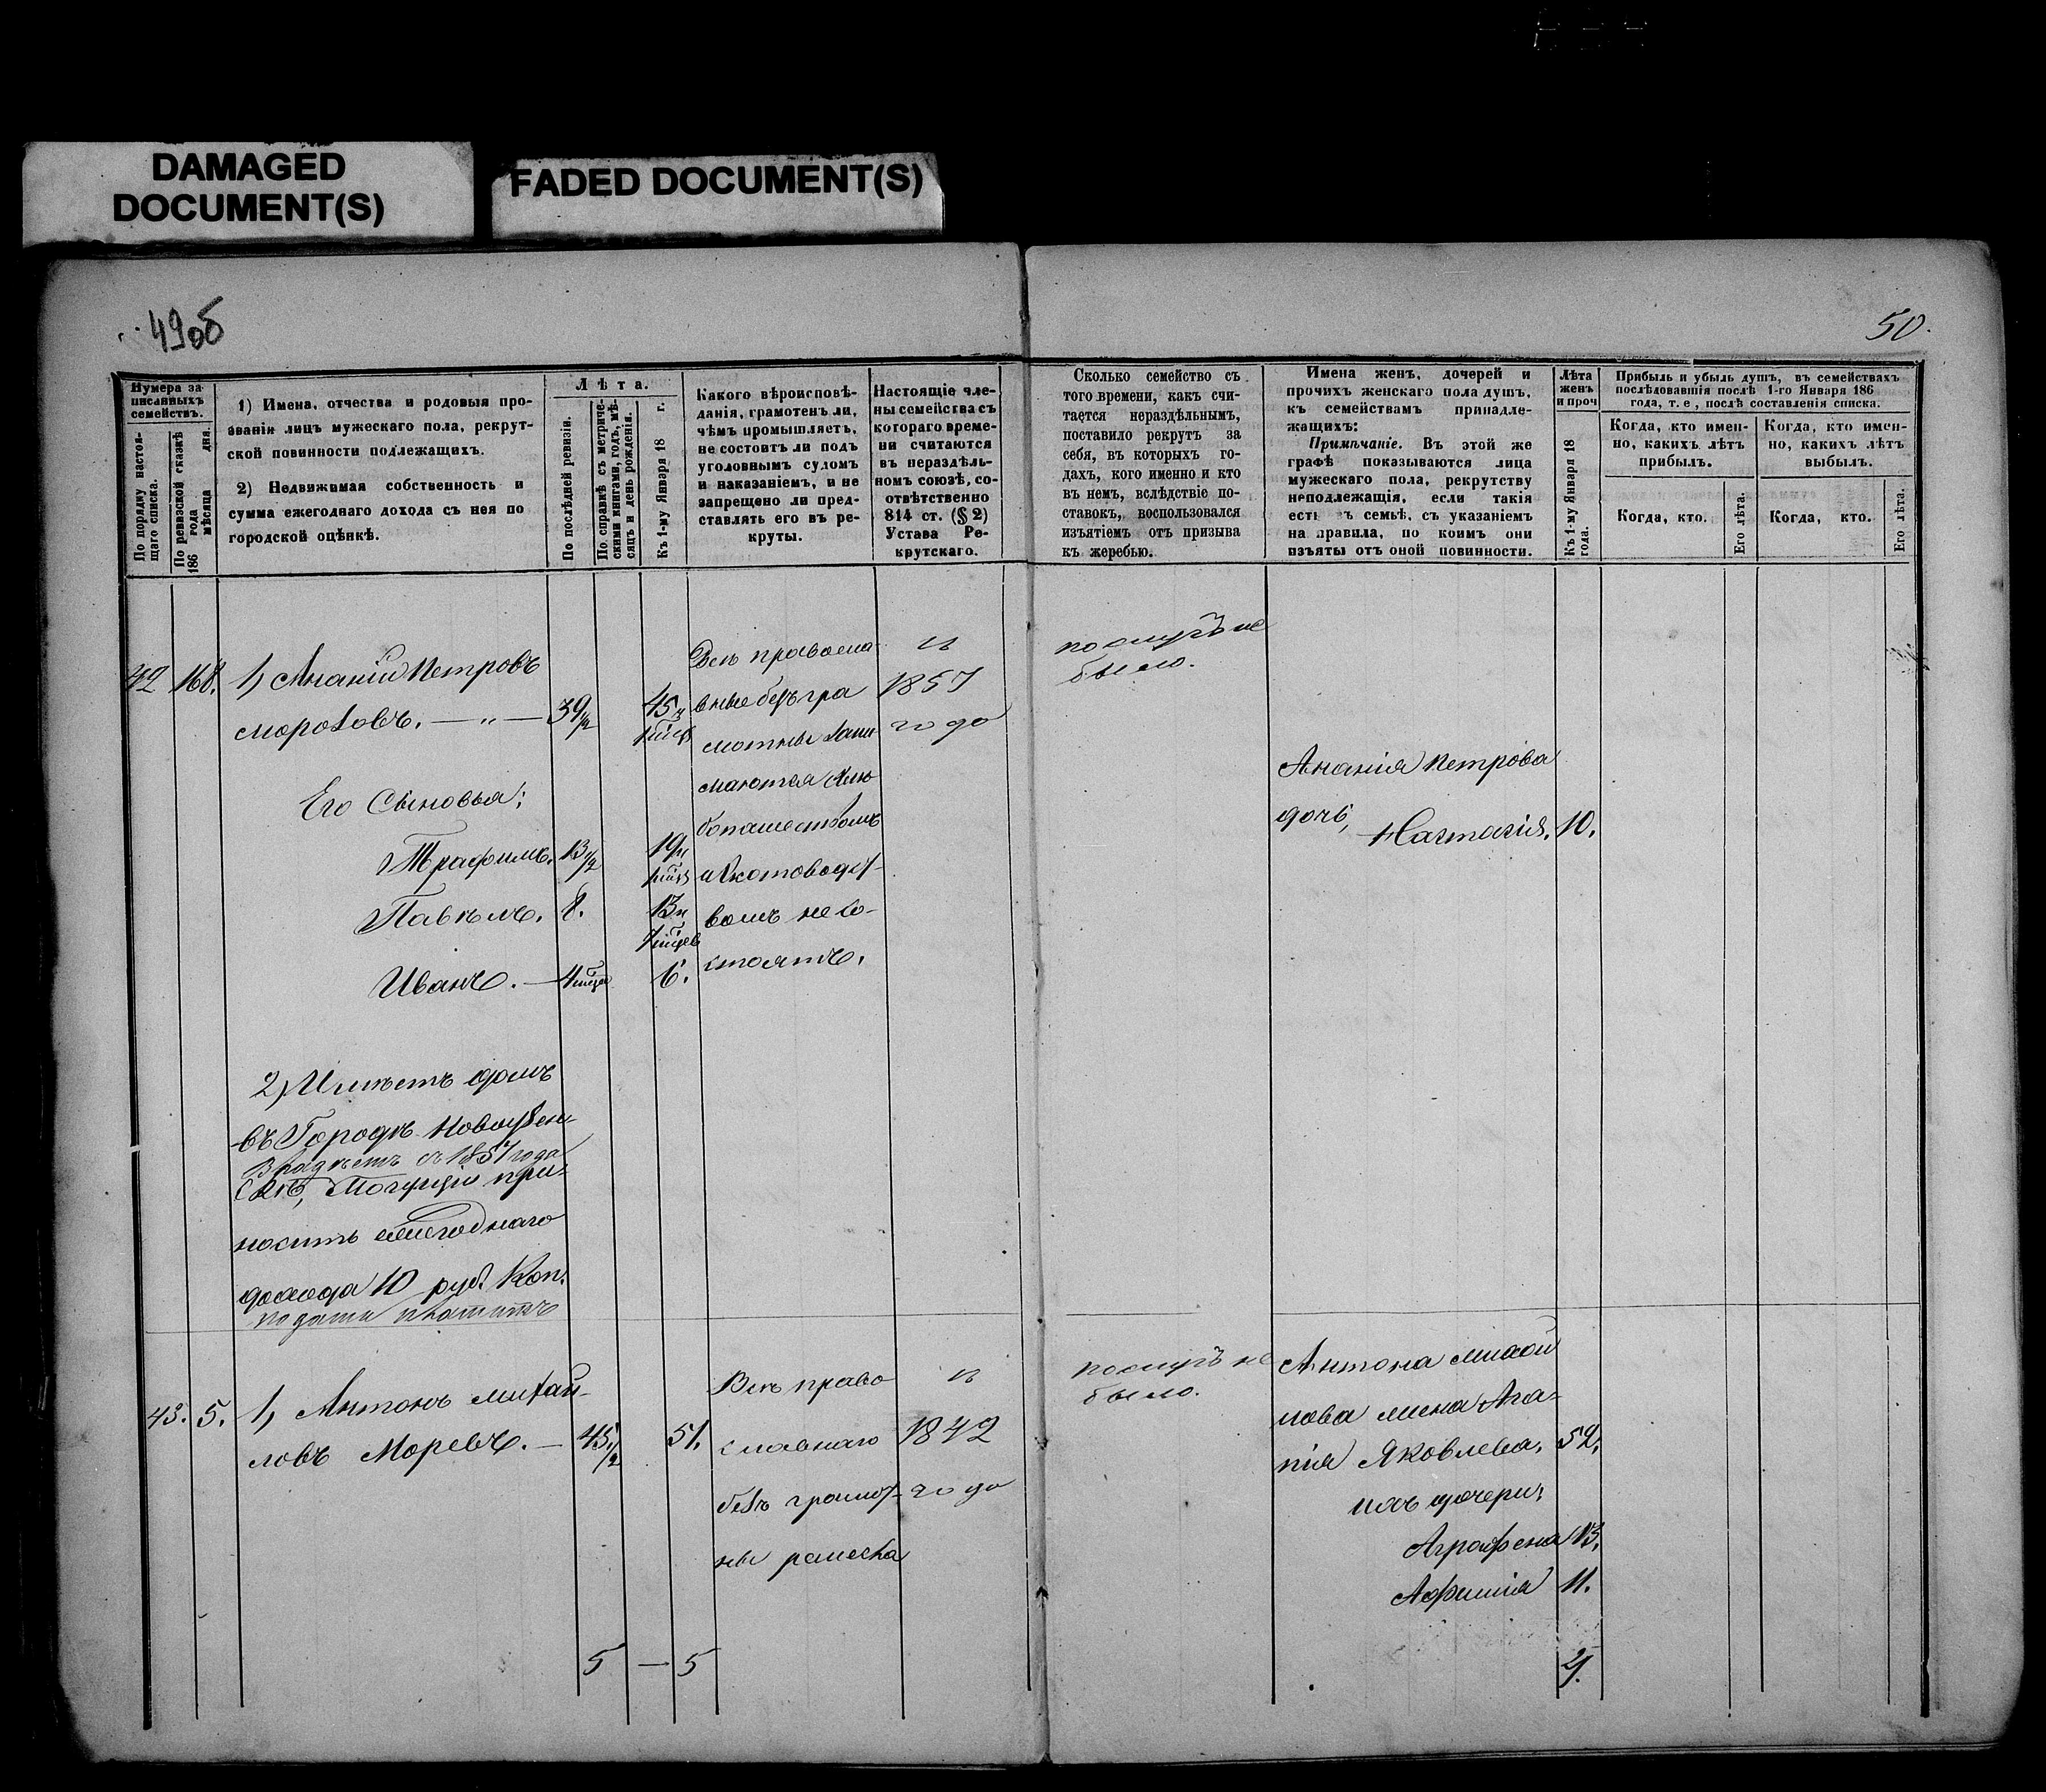 DAMAGED
DOCUMENT(S)
FADED DOCUMENT(S)
49об
50.
Нумера за-
писанныхъ
семействъ.
По порядку настоя-
щаго списка.
По ревизской сказкѣ
186 года
мѣсяца дня.
1) Имена, отчества и родовыя про-
званія лицъ мужескаго пола, рекрут-
ской повинности подлежащихъ.
2) Недвижимая собственность и
сумма ежегоднаго дохода съ нея по
городской оцѣнкѣ.
Лѣта.
По послѣдней ревизіи.
По справкѣ съ метриче-
скими книгами, годъ, мѣ-
сяцъ и день рожденія.
Къ 1-му Января 18 г.
Какого вѣроисповѣ-
данія, грамотенъ ли,
чѣмъ промышляетъ,
не состоитъ ли подъ
уголовнымъ судомъ
и наказаніемъ, и не
запрещено ли пред-
ставлять его въ ре-
круты.
Настоящіе чле-
ны семейства съ
котораго време-
ни считаются
въ нераздѣль-
номъ союзѣ, со-
отвѣтственно
814 ст. (§ 2)
Устава Ре-
крутскаго.
Сколько семейство съ
того времени, какъ счи-
тается нераздѣльнымъ,
поставило рекрутъ за
себя, въ которыхъ го-
дахъ, кого именно и кто
въ немъ, вслѣдствіе по-
ставокъ, воспользовался
изъятіемъ отъ призыва
къ жеребью.
Имена женъ, дочерей и
прочихъ женскаго пола душъ,
къ семействамъ принадле-
жащихъ:
Примѣчаніе. Въ этой же
графѣ показываются лица
мужескаго пола, рекрутству
неподлежащія, если такія
есть ъ семьѣ, съ указаніемъ
на правила, по коимъ они
изъяты отъ оной повинности.
Лѣта
женъ
и проч
Къ 1-му Января 18
года.
Прибыль и убыль душъ, въ семействахъ
послѣдовавшія послѣ 1-го Января 186
года, т. е, послѣ составленія списка.
Когда, кто имен-
но, какихъ лѣтъ
прибылъ.
Когда, кто имен-
но, какихъ лѣтъ
выбылъ.
Когда, кто.
Его лѣта.
Когда, кто.
Его лѣта.
42 168. 1, Ананій Петровъ
Морозовъ. — „ — 39½ 45
Его Сыновья:
Трафимъ. 13½ 19
Павелъ. 8. 13
Иванъ. — 6.
2) Имѣетъ домъ
въ Городѣ Новоузен-
Владѣетъ съ 1857 года
скѣ, Могущій при-
носить ежегоднаго
дохода 10 руб. Коп.
подати платитъ
Всѣ правосла-
вные безъ гра
мотны Зани
маются Хлѣ
бопашествомъ
и Скотоводст-
вомъ не со-
стоятъ.
съ
1857
года
послугъ не
было.
Ананія Петрова
дочь,
Настасія. 10.
43. 5. 1, Антонъ Михай-
ловъ Моревъ. — 45½ 51.
Всѣ право
славнаго
безъ грамот-
ны
съ
1842
года
послугъ не
было.
Антона Михай
лова жена Ага-
пія Яковлева, 52.
ихъ дочери:
Аграфена 13.
Афимія 11.
5 — 5